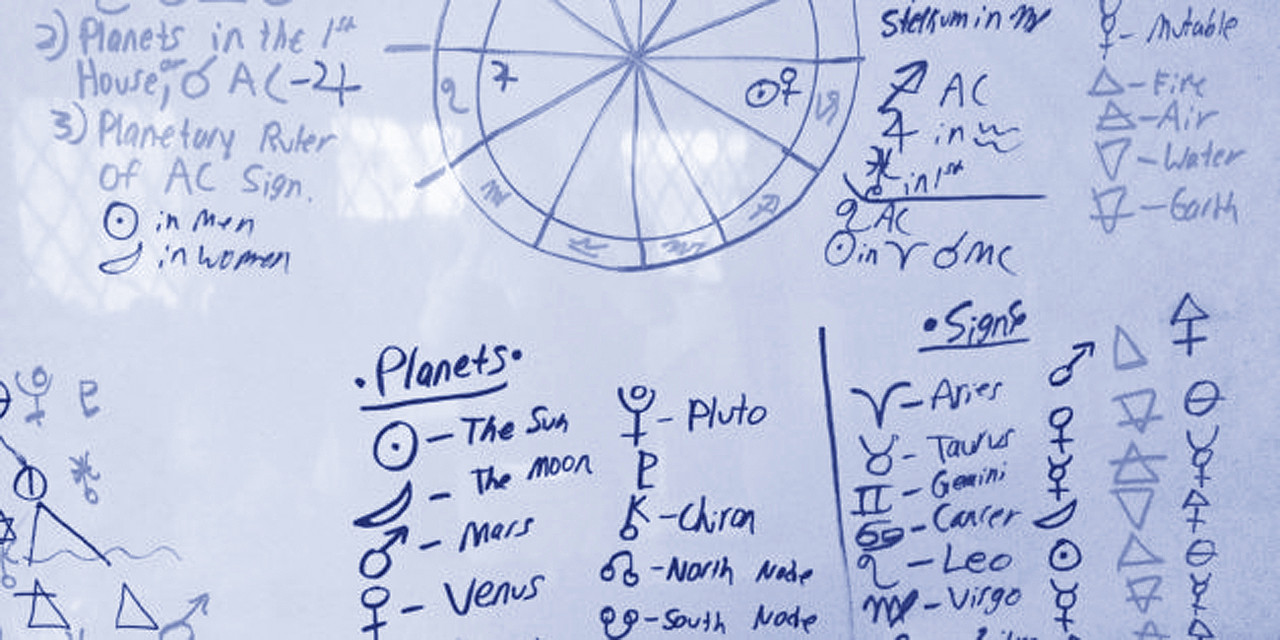 2) Planets in the 1st
House, or ☌ AC - ♃
3) Planetary Ruler
of AC Sign.
☉ in men
☽ in women
♌
♍
♎
♏
♐
♑
☉♀
Stellium in ♏
♐ AC
♃ in ♒
in 1st
♌ AC
☉ in ♈ ☌ MC
☿ - Mutable
🜂 - Fire
🜁 - Air
🜄 - Water
🜃 - Earth
• Planets •
☉ - The Sun
☽ - The Moon
♂ - Mars
♀ - Venus
- Pluto
♇
⚷ - Chiron
☊ - North Node
☋ - South Node
• Signs
♈ - Aries ♂ 🜂 🜍
♉ - Taurus ♀ 🜃 🜔
♊ - Gemini ☿ 🜁 ☿
♋ - Cancer ☽ 🜄 🜍
♌ - Leo ☉ 🜂 🜔
♍ - Virgo ☿ 🜃 ☿